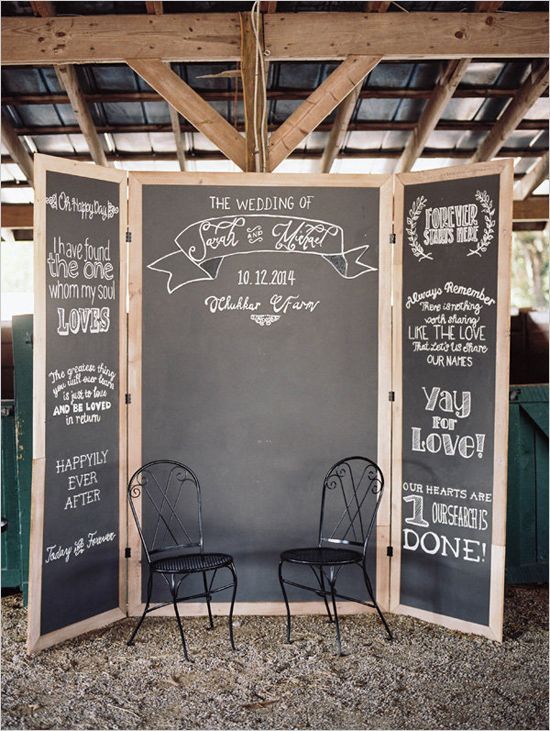 Oh Happy Day!
I have found
the one
whom my soul
LOVES
The greatest thing
you will ever learn
is just to love
AND BE LOVED
in return
HAPPILY
EVER
AFTER
Today & Forever
THE WEDDING OF
Sarah AND Michael
10.12.2014
Chukkar Farm
FOREVER
STARTS HERE
Always Remember
There is nothing
worth sharing
LIKE THE LOVE
That Let's Us Share
OUR NAMES
YAY
FOR
LOVE!
OUR HEARTS ARE
1 OUR SEARCH IS
DONE!